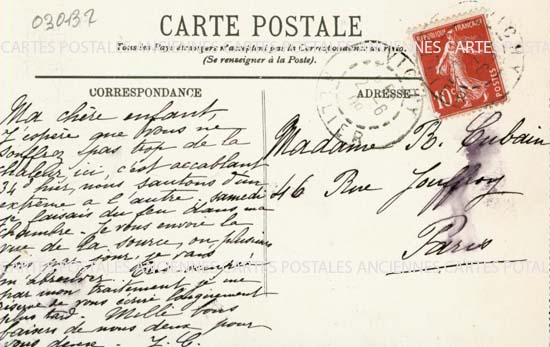 030132
CARTE POSTALE
Tous les Pays étrangers n'acceptent pas la Correspondance au recto.
(Se renseigner à la Poste).
CARTES POSTALES ANCIENNES CARTES POSTALES
CORRESPONDANCE
ADRESSE
REPUBLIQUE FRANÇAISE
10c
POSTES
VICHY
ALLIER
Ma chère enfant,
J'espère que vous ne
souffrez pas trop de la
chaleur, ici, c'est accablant
34° hier, nous sautons d'un
extrême à l'autre, samedi
je faisais du feu dans ma
chambre. Je vous envoie la
vue de la source, où, plusieurs
fois par jour, je vais
m'abreuver.
par mon traitement, je me
réserve de vous écrire longuement
plus tard. Mille bons
baisers de nous deux pour
vous deux. J. C.
Madame B. Cubain
46 Rue Jouffroy
Paris
CARTES POSTALES ANCIENNES CARTES POSTALES